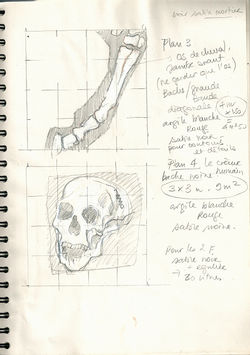 voir sable mortier
Plan 3
os de cheval,
jambe avant
(ne garder que l'os)
Bache grande
bande
diagonale
argile blanche
Rouge
sable noir
pour contours
et détails
Plan 4. le crâne
bache noire humain
3 x 3 m. 9 m²
argile blanche
Rouge
sable noire.
Pour les 2 F
sable noire
30 litres